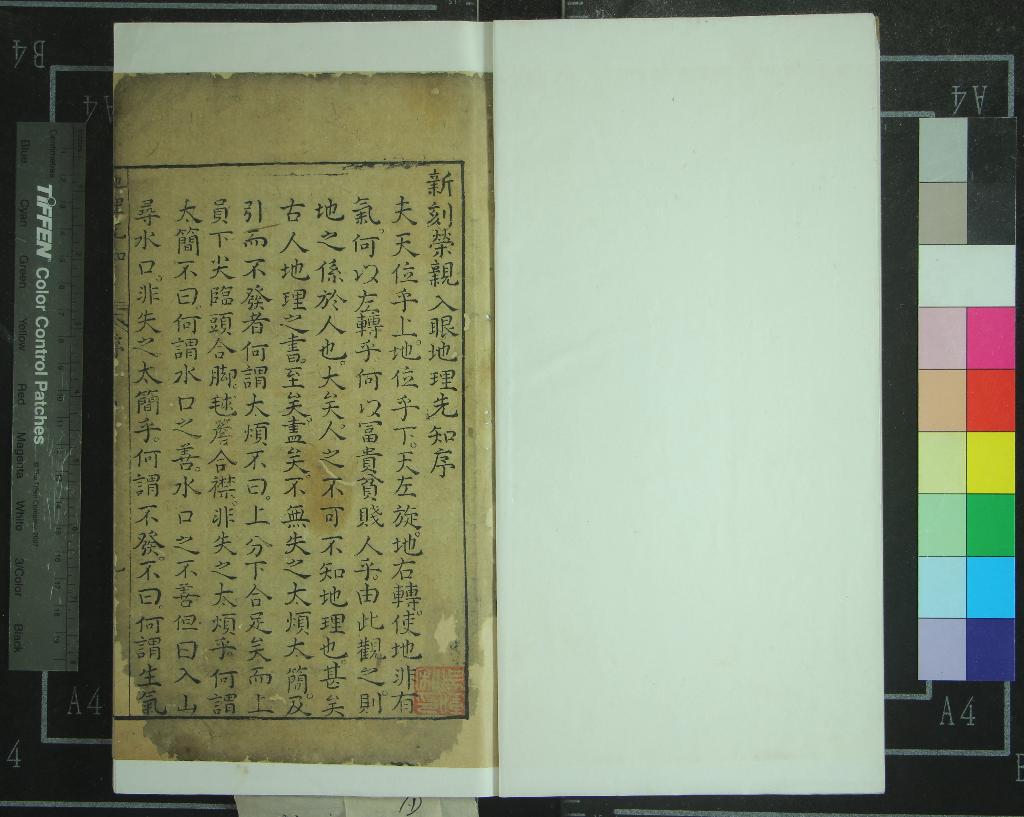 新刻榮親入眼地理先知序
夫天位乎上。地位乎下。天左旋。地右轉。使地非有
氣。何以左轉乎何以冨貴貧賤人乎。由此觀之。則
地之係於人也。大矣。人之不可不知地理也。甚矣
古人地理之書。至矣。盡矣。不無失之太煩太簡。及
引而不發者何謂太煩不曰。上分下合足矣而上
員下尖臨頭合脚。毬簷合襟。非失之太煩乎。何謂
太簡不曰。何謂水口之善。水口之不善但曰入山
尋水口。非失之太簡乎。何謂不發。不曰。何謂生氣
TIFFEN Color Control Patches
Centimetres
Blue
Cyan
Green
Yellow
Red
Magenta
White
3/Color
Black
B4
A4
A4
A4
A4
4